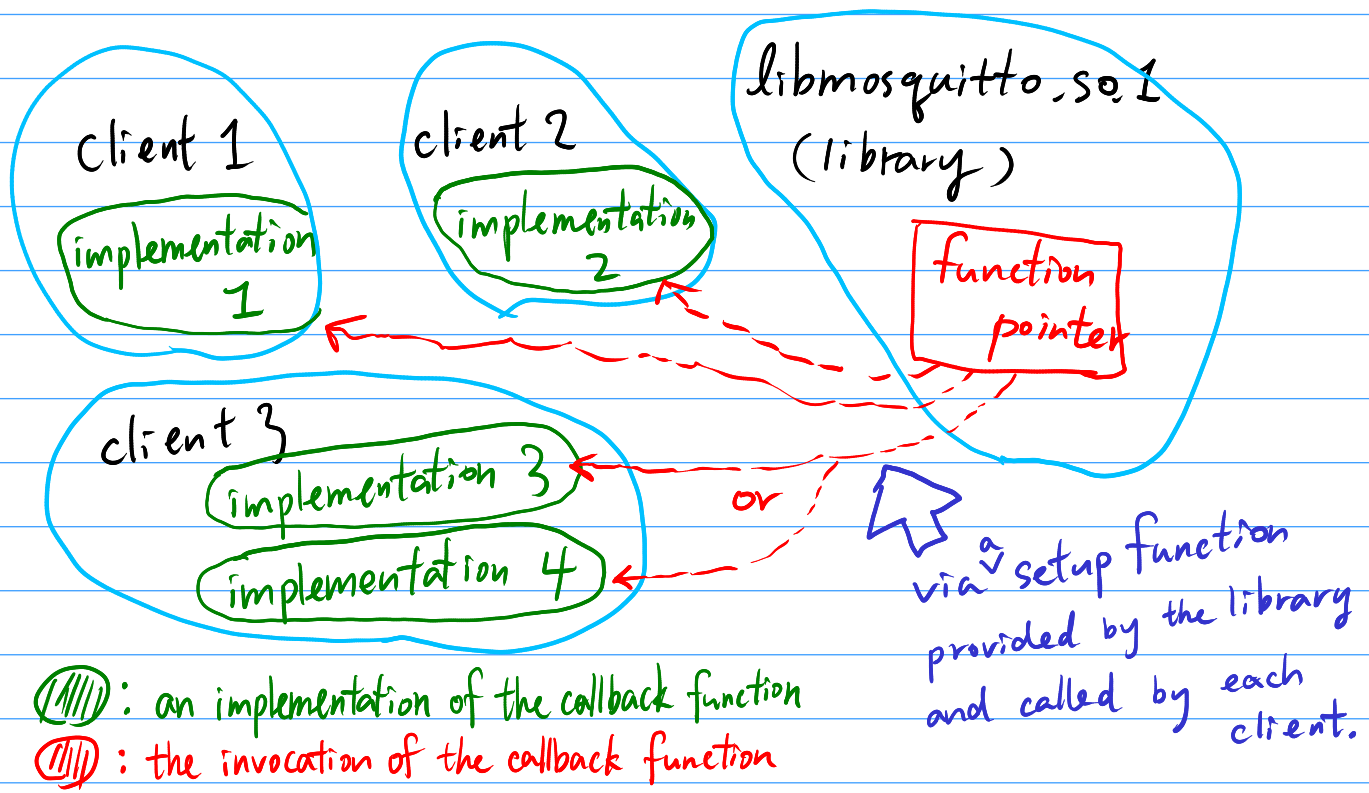 client 1
implementation
1
client 2
implementation
2
libmosquitto.so.1
(library)
function
pointer
client 3
implementation 3
or
implementation 4
via a setup function
provided by the library
and called by each
client.
: an implementation of the callback function
: the invocation of the callback function